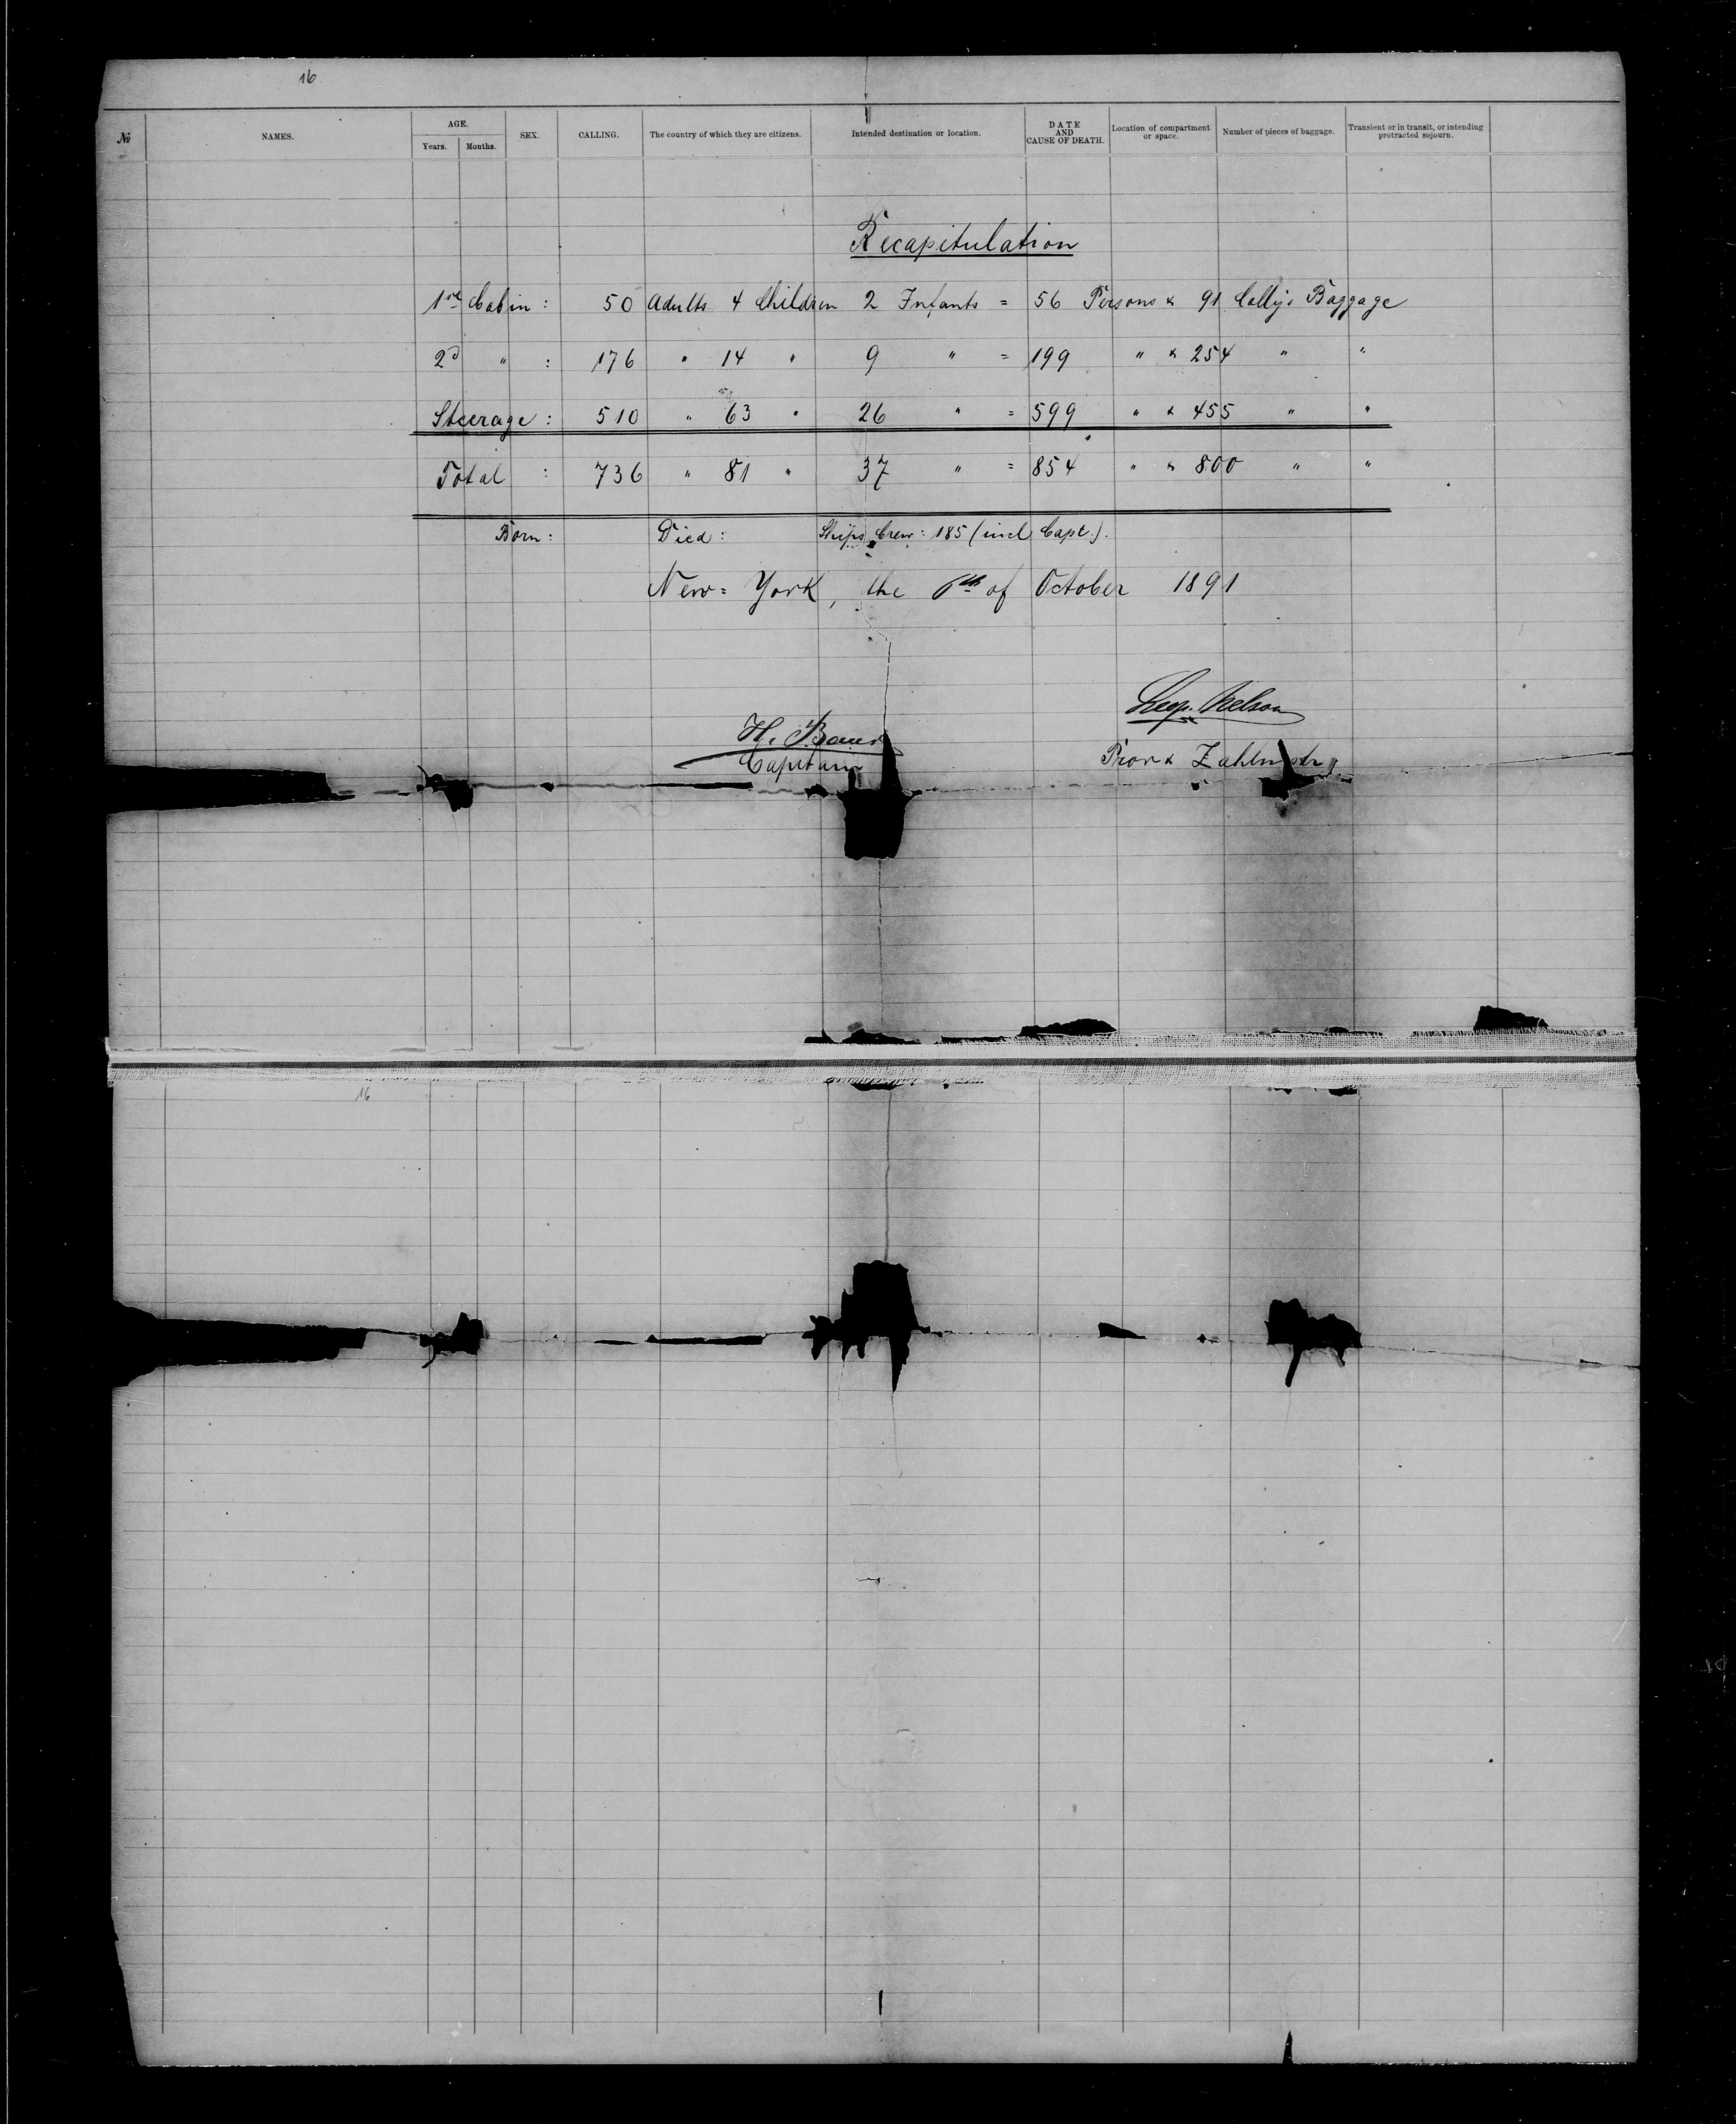 16
№ NAMES. AGE. Years. Months. SEX. CALLING. The country of which they are citizens. Intended destination or location. DATE AND CAUSE OF DEATH. Location of compartment or space. Number of pieces of baggage. Transient or in transit, or intending protracted sojourn.
Recapitulation
1st Cabin : 50 Adults 4 Children 2 Infants = 56 Persons & 91 Collys Baggage
2d " : 176 " 14 " 9 " = 199 " & 254 " "
Steerage : 510 " 63 " 26 " = 599 " & 455 " "
Total : 736 " 81 " 37 " = 854 " & 800 " "
Born : Died : Ships Crew : 185 (incl Capt.).
New = York, the 6th of October 1891
Nelson
H. Bauer
Capitain
Prov &
16